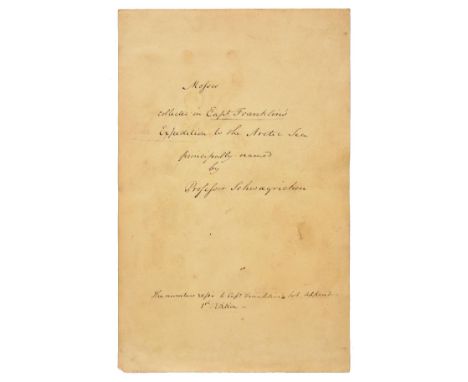 Mosses
collected in Capt Franklin's
Expedition to the Arctic Sea
principally named
by
Professor Schwagrichen
The numbers refer to Capt Franklin's bot. Append
1st Edition –